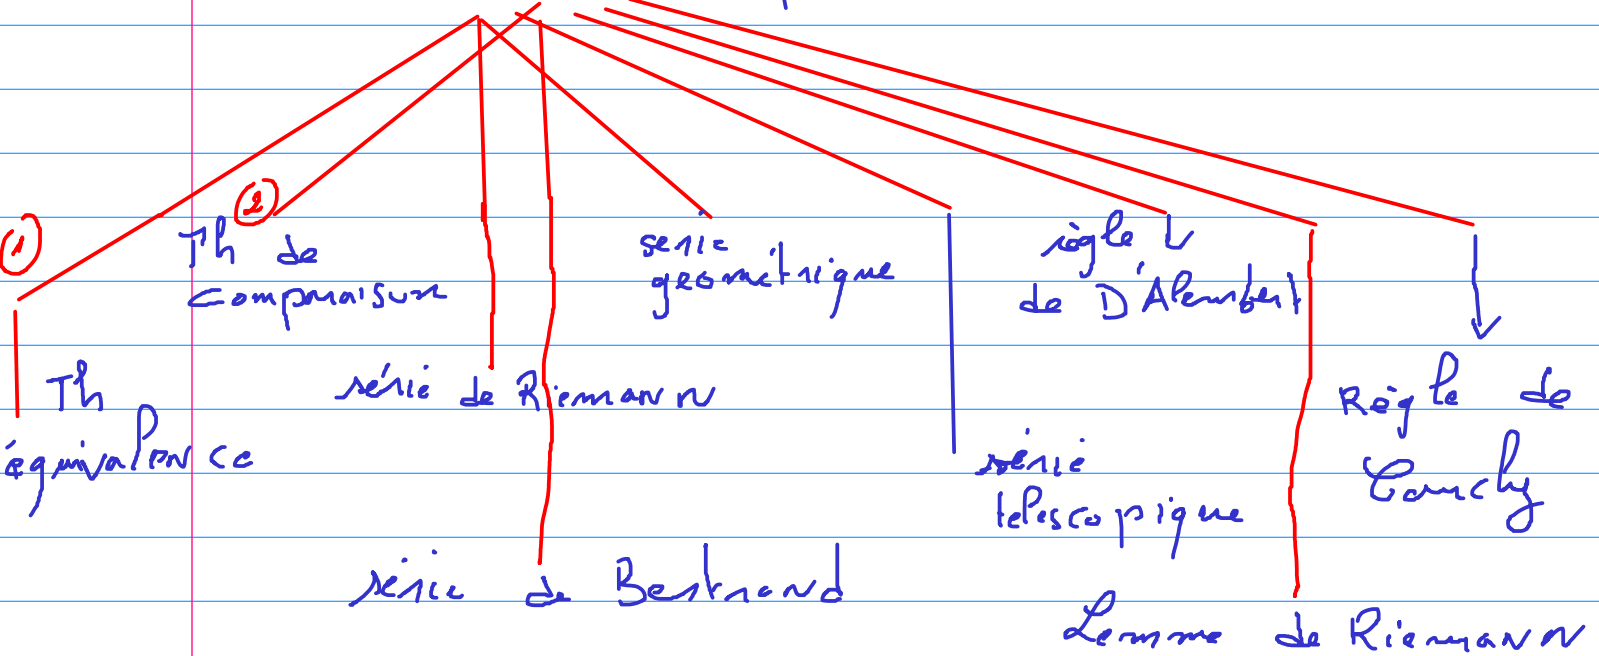 ①
Th
équivalence
②
Th de
comparaison
série de Riemann
série de Bertrand
serie
géométrique
série
telescopique
règle
de D'Alembert
Lemme de Riemann
Règle de
Cauchy